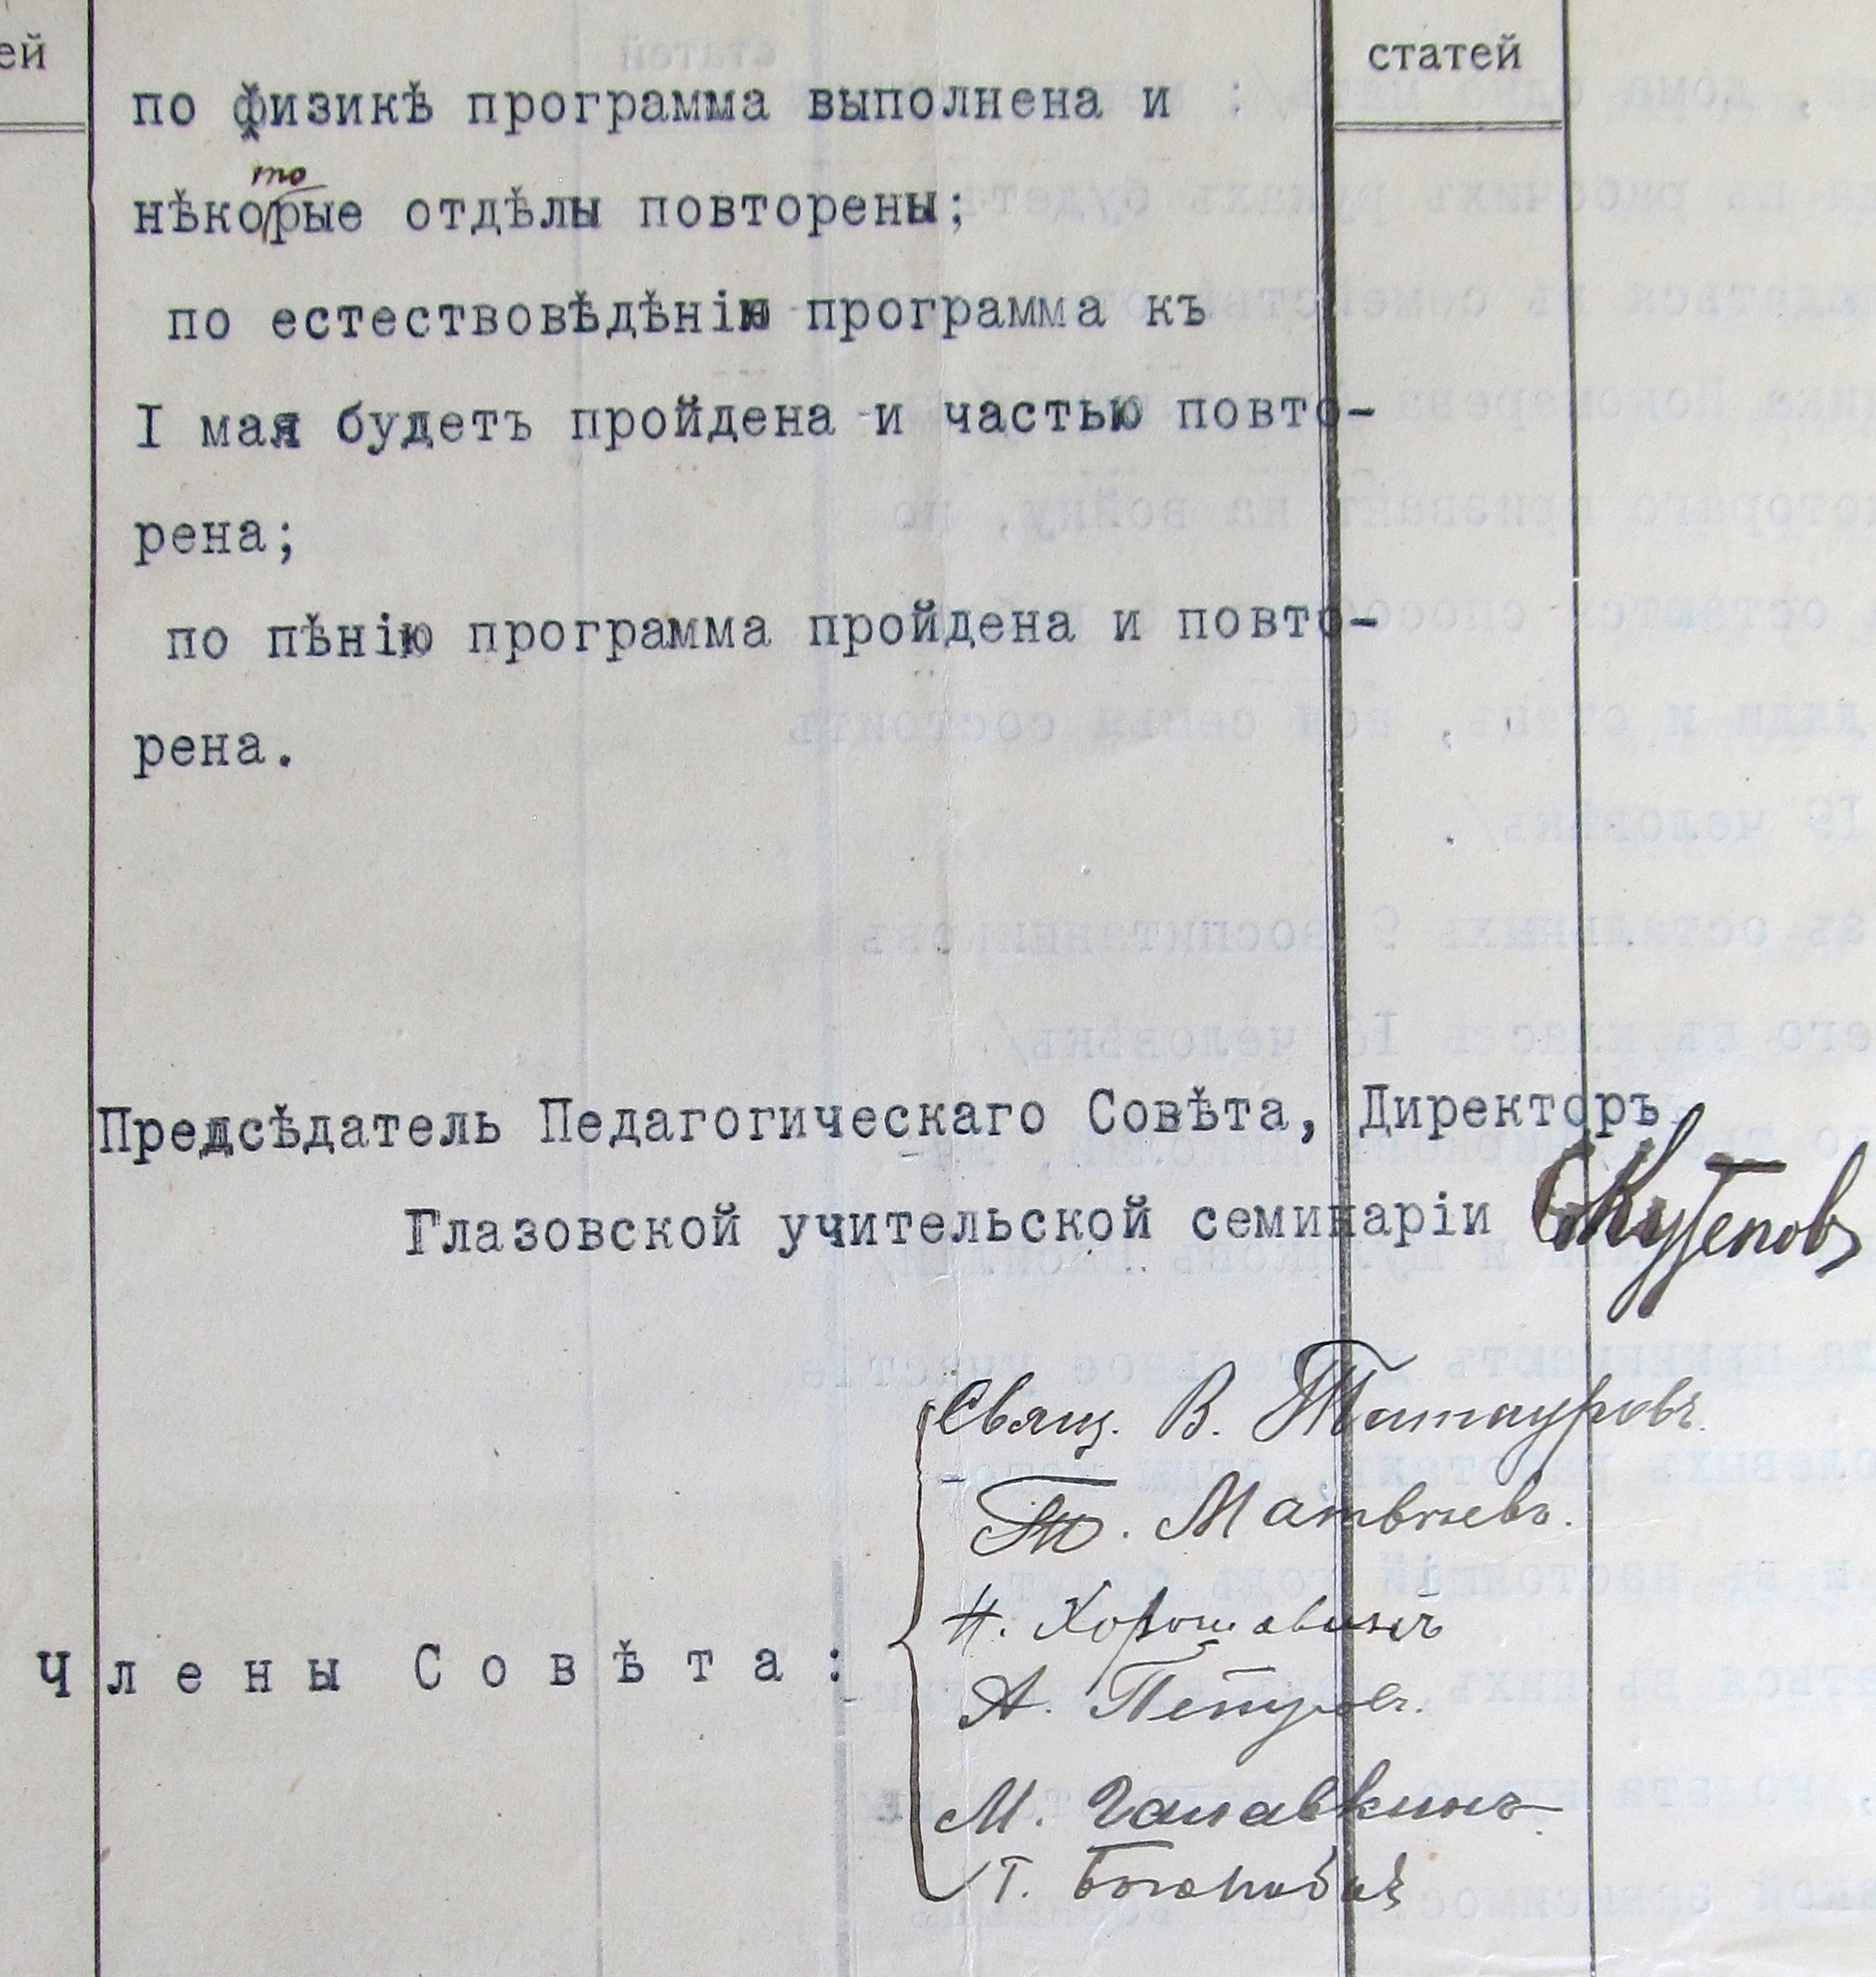 ей
статей
по физикѣ программа выполнена и
то
нѣкорые отдѣлы повторены;
по естествовѣдѣнію программа къ
I мая будетъ пройдена и частью повто-
рена;
по пѣнію программа пройдена и повто-
рена.
Предсѣдатель Педагогическаго Совѣта, Директоръ
Глазовской учительской семинаріи Кутеповъ
Свящ. В. Татауровъ.
Матвѣевъ.
Н. Хорошавинъ
Члены Совѣта:
А. Петровъ.
М.
Г.